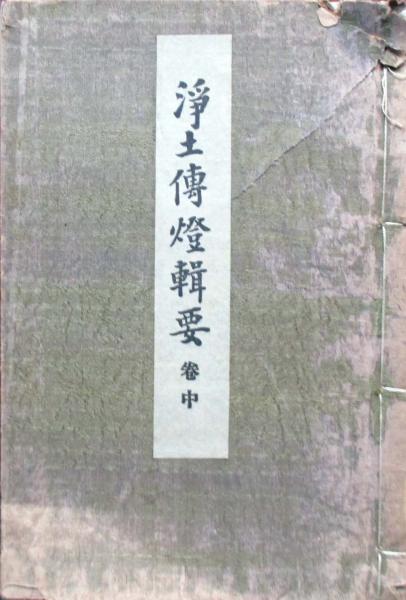 淨土傳燈輯要 卷中